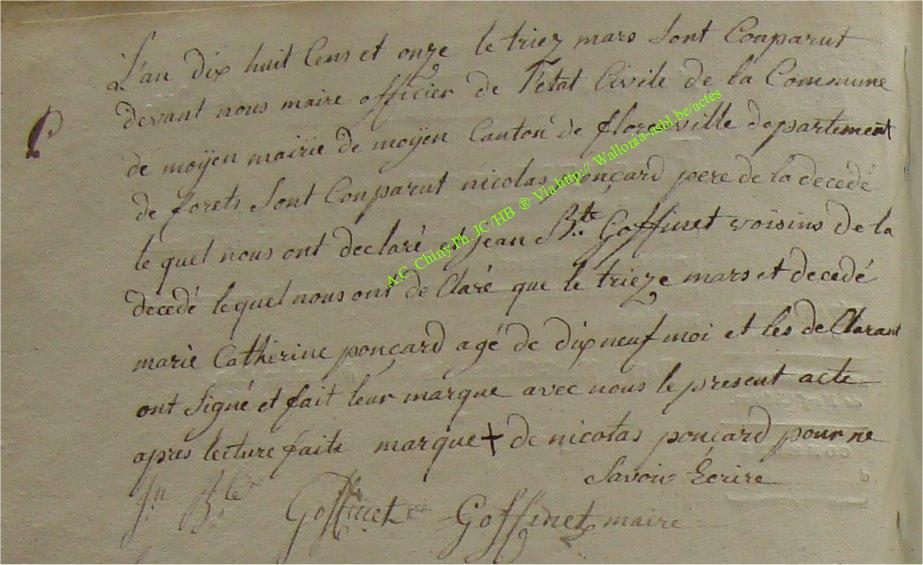 L'an dix huit Cens et onze le triez mars sont Conparut
devant nous maire officier de l'Etat Civile de la Commune
de moÿen mairie de moÿen Canton de florenville departement
de forets sont Conparut nicolas ponçard pere de la decedé
le quel nous ont declaré et jean Bte Goffinet voisins de la
decedé lequel nous ont de Claré que le trieze mars et decedé
marie Catherine ponçard agé de dix neuf moi et les de Clarant
ont signé et fait leur marque avec nous le present acte
apres lecture faite marque + de nicolas ponçard pour ne
savoir Ecrire
Jn Bte Goffinet Goffinet maire
A.C. Chiny Ph. JC/HB ® Via http:// Wallonia-asbl.be/actes